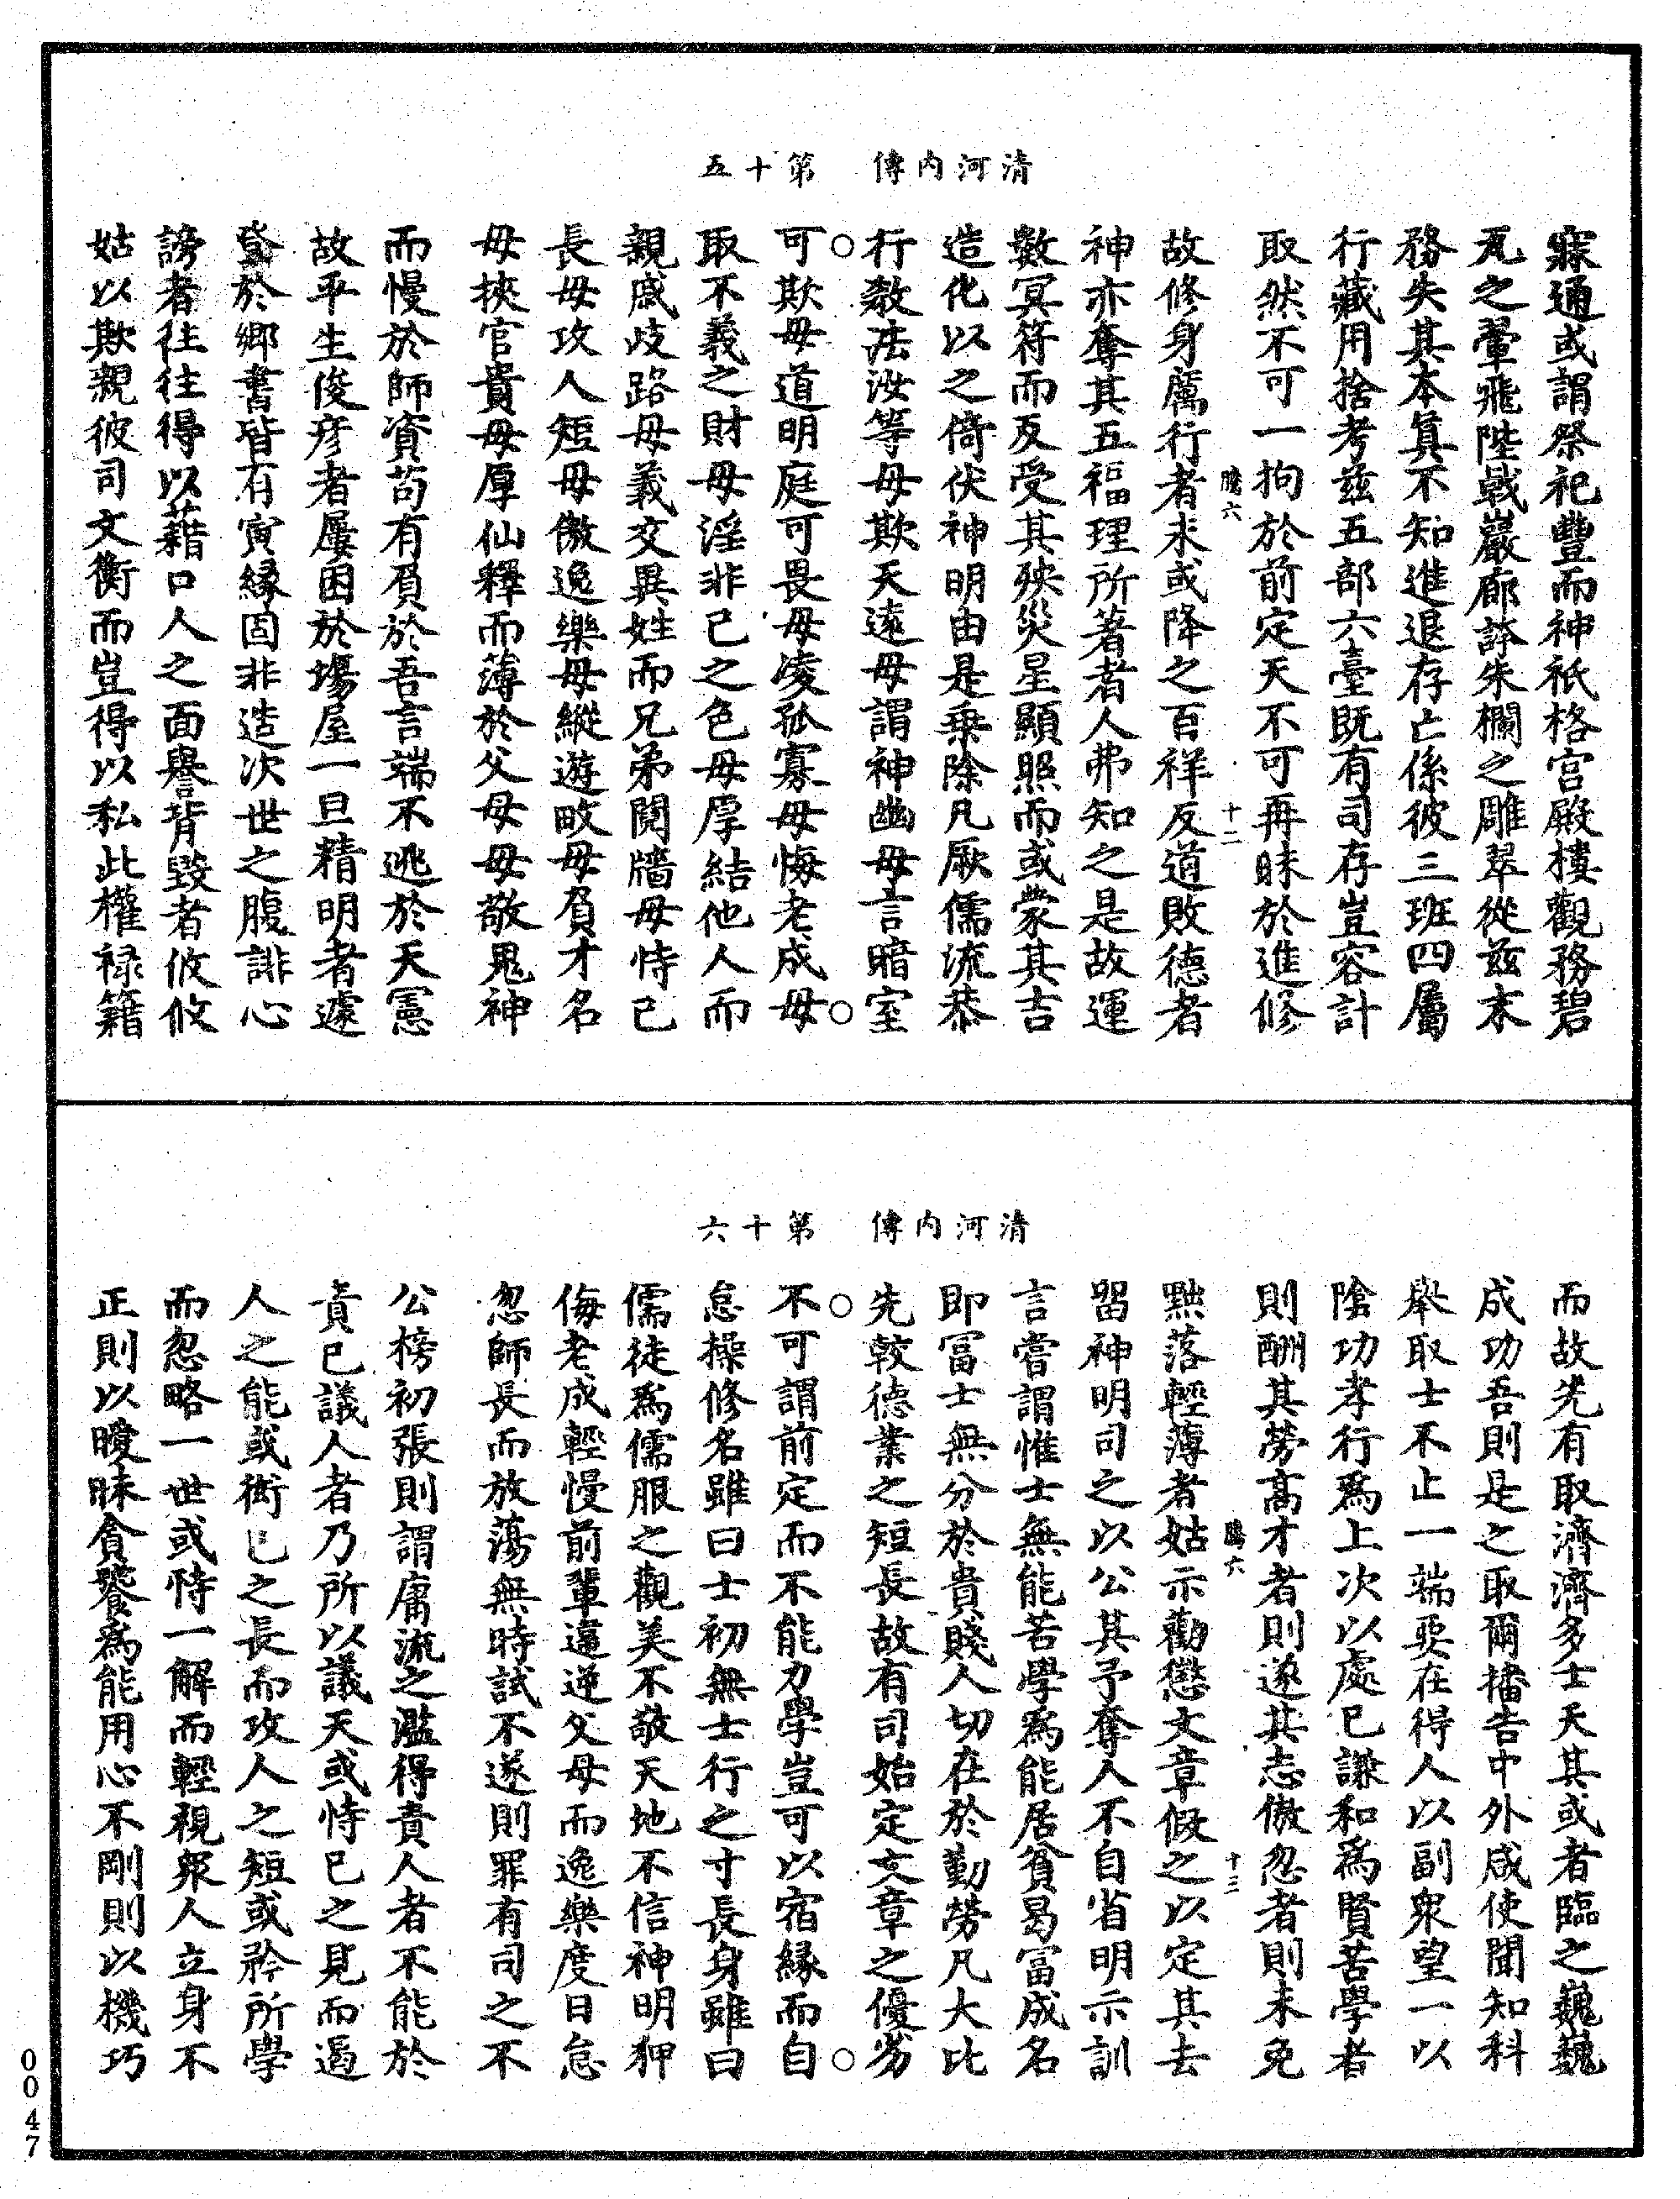 清河內傳　第十五
寐通或謂祭祀豐而神祇格宮殿樓觀務碧
瓦之翬飛陛戟巖廊詫朱欄之雕翠從兹末
務失其本真不知進退存亡係彼三班四屬
行藏用捨考兹五部六臺既有司存豈容計
取然不可一拘於前定天不可再昧於進修
騰六　十二
故修身厲行者未或降之百祥反道敗德者
神亦奪其五福理所著者人弗知之是故運
數冥符而反受其殃災星顯照而或蒙其吉
造化以之倚伏神明由是乗除凡厥儒流恭
行教法汝等毋欺天遠毋謂神幽毋言暗室○
可欺毋道明庭可畏毋凌孤寡毋悔老成毋○
取不義之財毋淫非己之色毋厚結他人而
親戚歧路毋義交異姓而兄弟鬩牆毋恃己
長毋攻人短毋傲逸樂毋縱遊畋毋負才名
毋挾官貴毋厚仙釋而薄於父母毋敬鬼神
而慢於師資苟有負於吾言端不逃於天憲
故平生俊彦者屢困於場屋一旦精明者遽
登於鄉書皆有寅緣固非造次世之腹誹心
謗者往往得以藉口人之面譽背毀者攸攸
姑以欺親彼司文衡而豈得以私此權禄籍
清河內傳　第十六
而故先有取濟濟多士天其或者臨之巍巍
成功吾則是之取爾播告中外咸使聞知科
舉取士不止一端要在得人以副衆望一以
陰功孝行爲上次以處己謙和爲賢苦學者
則酬其勞高才者則遂其志傲忽者則未免
騰六　十三
黜落輕薄者姑示勸懲文章假之以定其去
留神明司之以公其予奪人不自省明示訓
言嘗謂惟士無能苦學爲能居貧曷冨成名
即冨士無分於貴賤人切在於勤勞凡大比
先較德業之短長故有司始定文章之優劣○
不可謂前定而不能力學豈可以宿緣而自○
怠操修名雖曰士初無士行之寸長身雖曰
儒徒爲儒服之觀美不敬天地不信神明狎
侮老成輕慢前輩違逆父母而逸樂度日怠
忽師長而放蕩無時試不遂則罪有司之不
公榜初張則謂庸流之濫得責人者不能於
責己議人者乃所以議天或恃己之見而遏
人之能或衒己之長而攻人之短或矜所學
而忽略一世或恃一解而輕視衆人立身不
正則以曖昧貪饕爲能用心不剛則以機巧
0047